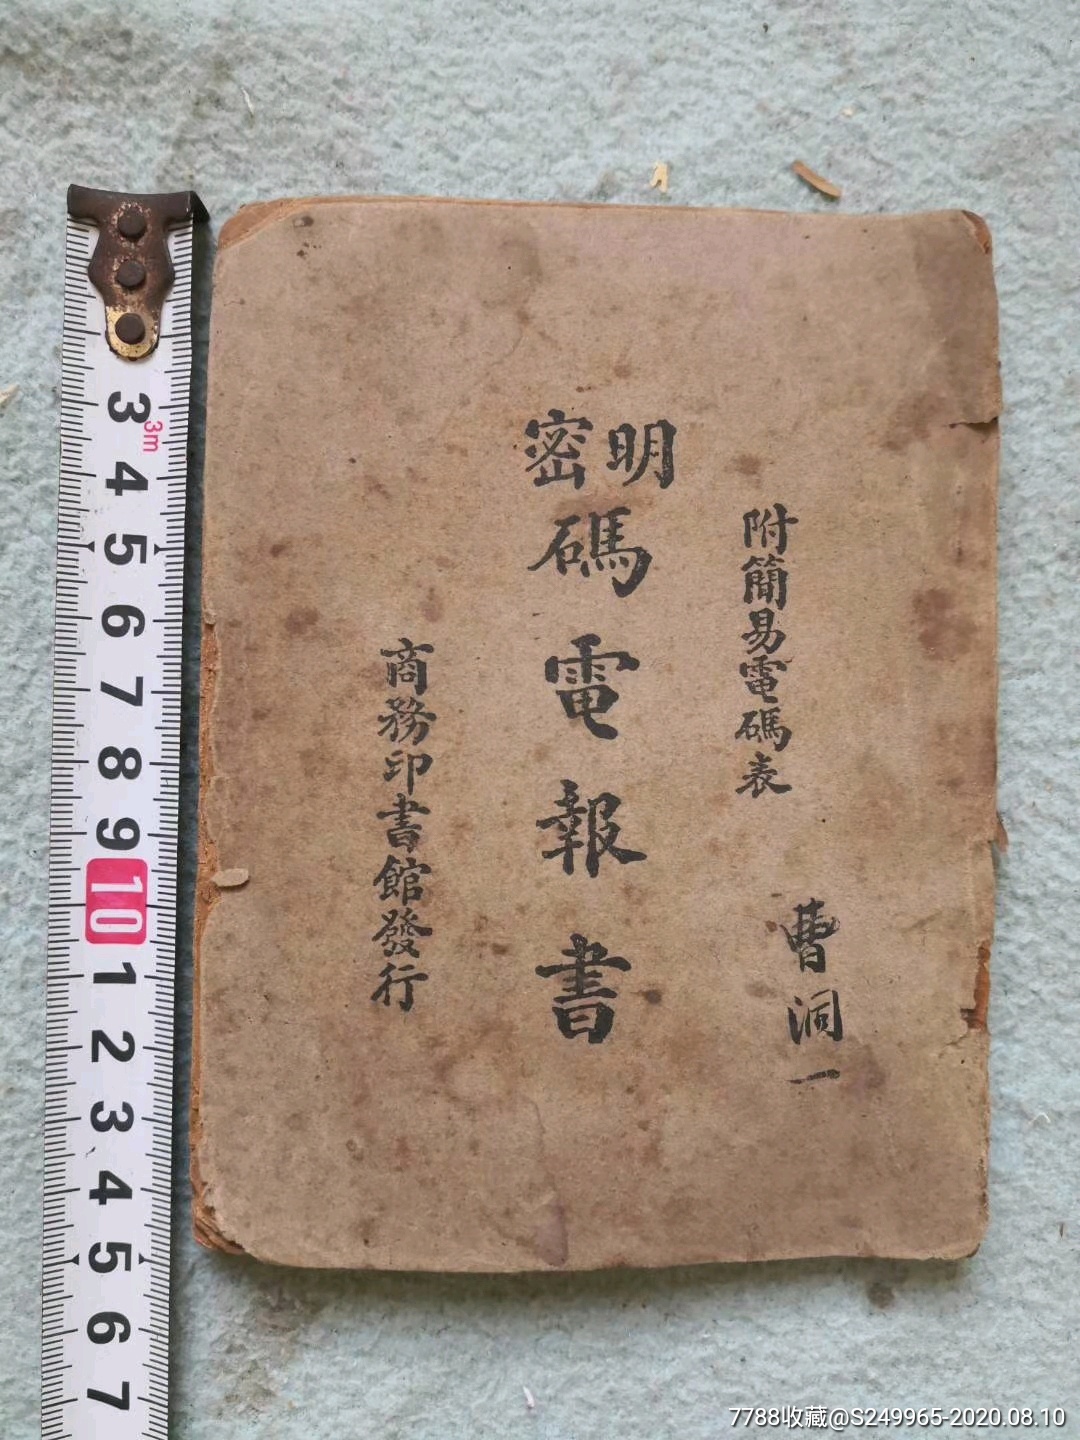 附簡易電碼表
曹洞一
明密碼電報書
商務印書館發行
3m
3
4
5
6
7
8
9
10
1
2
3
4
5
6
7
7788收藏@S249965-2020.08.10